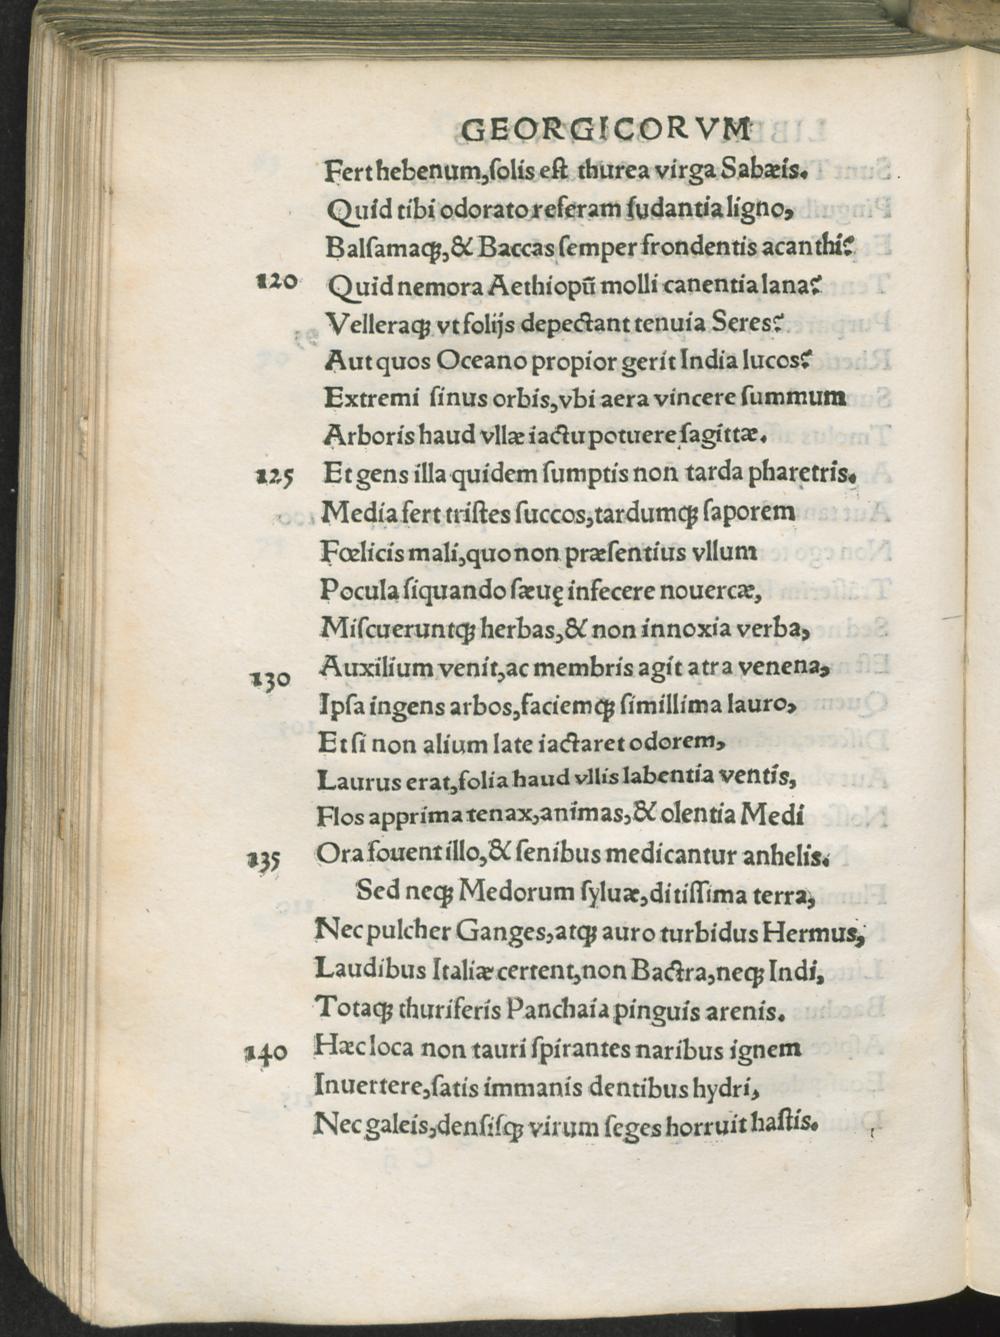 GEORGICORVM
Fert hebenum, ſolis eſt thurea virga Sabæis.
Quid tibi odorato referam ſudantia ligno,
Balſamaqꝫ, & Baccas ſemper frondentis acanthi?
120 Quid nemora Aethiopũ molli canentia lana?
Velleraqꝫ vt folijs depectant tenuia Seres?
Aut quos Oceano propior gerit India lucos?
Extremi ſinus orbis, vbi aera vincere ſummum
Arboris haud vllæ iactu potuere ſagittæ.
125 Et gens illa quidem ſumptis non tarda pharetris.
Media fert triſtes ſuccos, tardumqꝫ ſaporem
Fœlicis mali, quo non præſentius vllum
Pocula ſiquando ſæuę infecere nouercæ,
Miſcueruntqꝫ herbas, & non innoxia verba,
130 Auxilium venit, ac membris agit atra venena,
Ipſa ingens arbos, faciemqꝫ ſimillima lauro,
Et ſi non alium late iactaret odorem,
Laurus erat, folia haud vllis labentia ventis,
Flos apprima tenax, animas, & olentia Medi
135 Ora fouent illo, & ſenibus medicantur anhelis.
Sed neqꝫ Medorum ſyluæ, ditiſſima terra,
Nec pulcher Ganges, atqꝫ auro turbidus Hermus,
Laudibus Italiæ certent, non Bactra, neqꝫ Indi,
Totaqꝫ thuriferis Panchaia pinguis arenis.
140 Hæc loca non tauri ſpirantes naribus ignem
Inuertere, ſatis immanis dentibus hydri,
Nec galeis, denſiſqꝫ virum ſeges horruit haſtis.